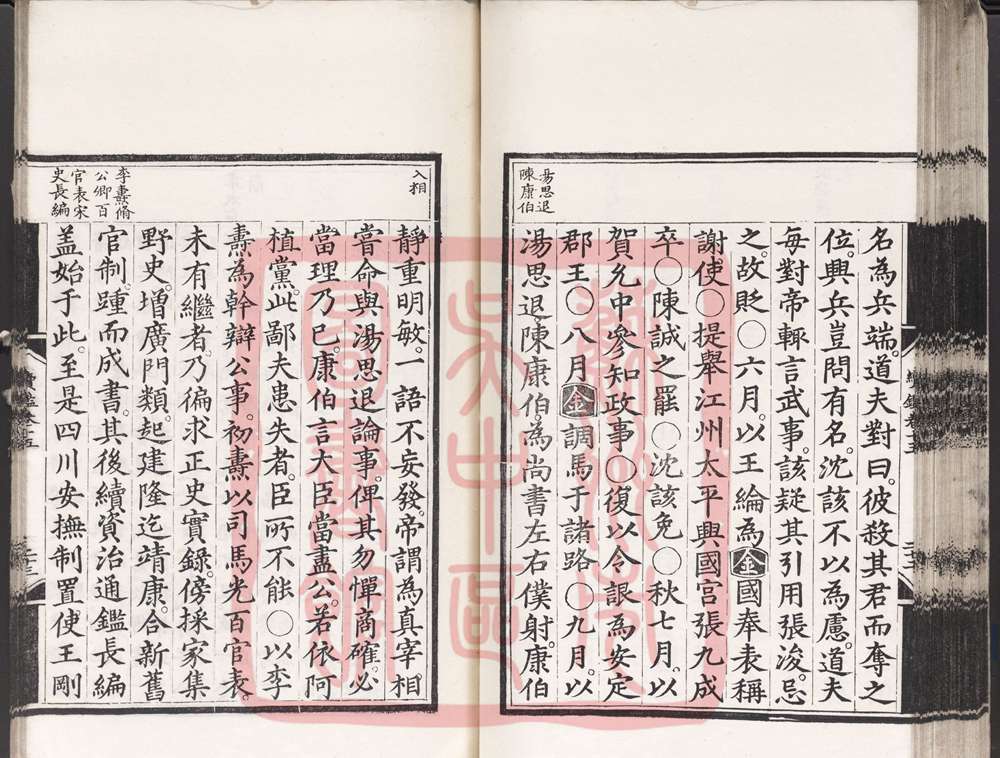 湯思退
陳康伯
名為兵端。道夫對曰。彼殺其君而奪之
位。興兵豈問有名。沈該不以為慮。道夫
每對帝輒言武事。該疑其引用張浚。忌
之。故貶〇六月。以王綸為金國奉表稱
謝使〇提舉江州太平興國宮張九成
卒〇陳誠之罷〇沈該免〇秋七月。以
賀允中參知政事〇復以令詪為安定
郡王〇八月金調馬于諸路〇九月。以
湯思退。陳康伯。為尚書左右僕射。康伯
入相
靜重明敏。一語不妄發。帝謂為真宰相
嘗命與湯思退論事。俾其勿憚商確。必
當理乃已。康伯言大臣當盡公。若依阿
植黨。此鄙夫患失者。臣所不能〇以李
燾為幹辦公事。初燾以司馬光百官表。
未有繼者。乃徧求正史實錄。傍採家集
野史。增廣門類。起建隆迄靖康。合新舊
官制。踵而成書。其後續資治通鑑長編
盖始于此。至是四川安撫制置使王剛
李燾脩
公卿百
官表宋
史長編